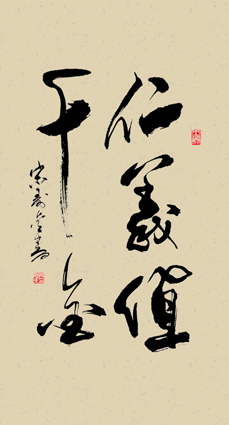 仁義值
千金